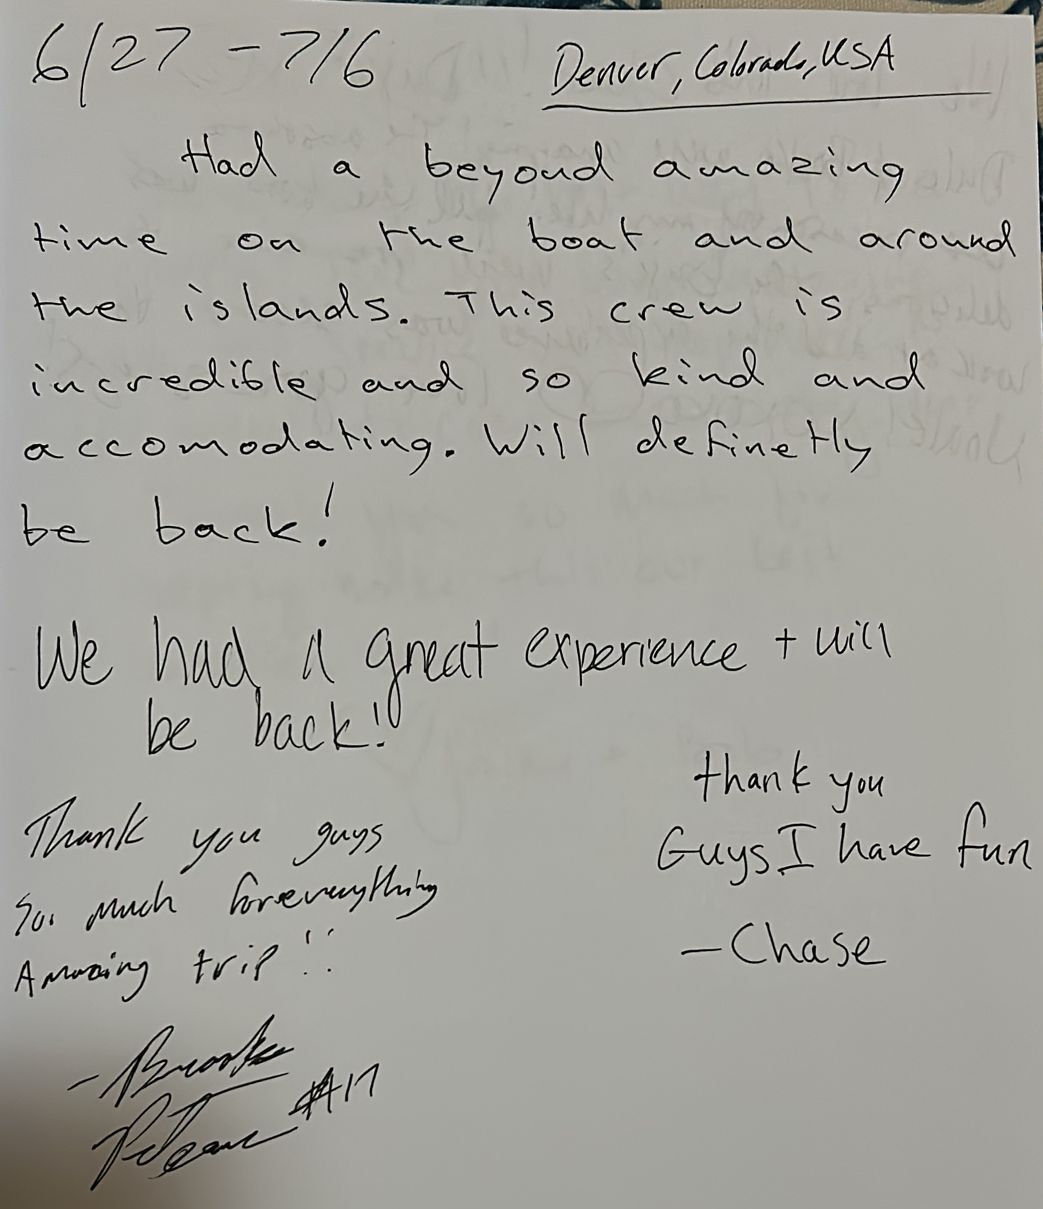 6/27 - 7/6
Denver, Colorado, USA
Had a beyond amazing
time on the boat and around
the islands. This crew is
incredible and so kind and
accomodating. Will definetly
be back!
We had a great experience + will
be back!
Thank you guys
So much for everything
Amazing trip!!
- Brooks
#17
thank you
Guys I have fun
- Chase